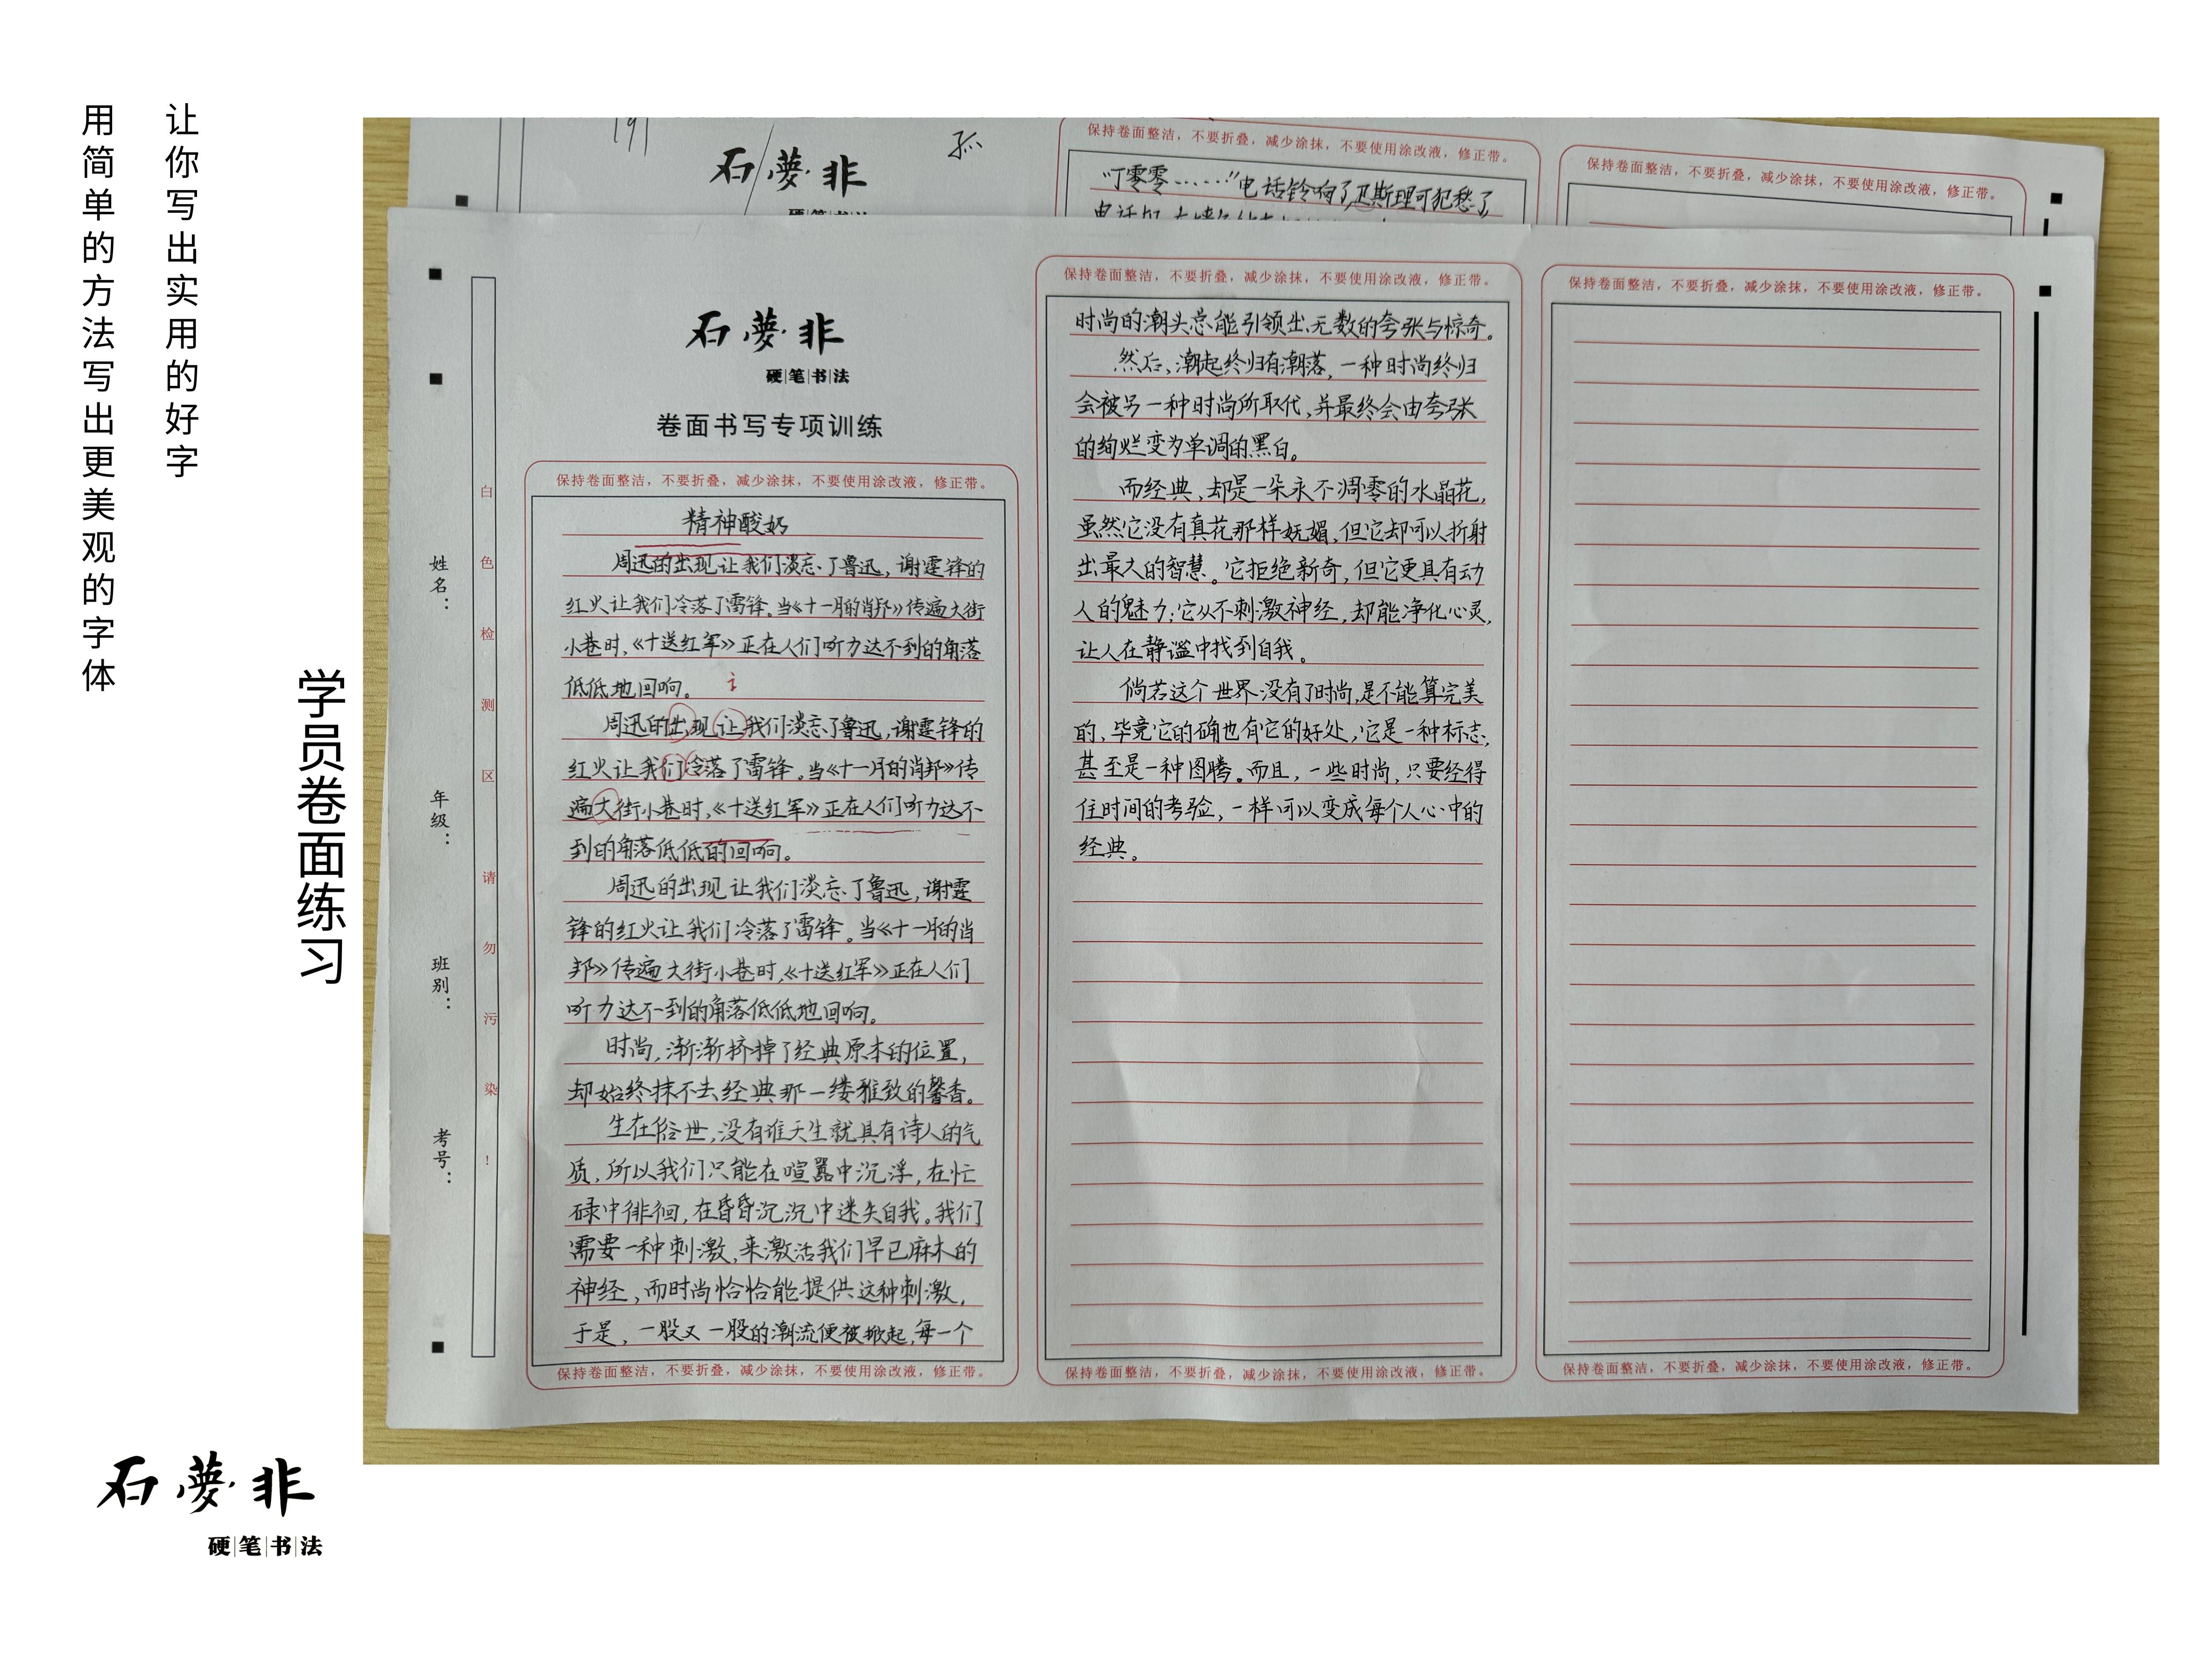 让你写出实用的好字
用简单的方法写出更美观的字体
学员卷面练习
石夢非
硬笔书法
石夢非
孤
保持卷面整洁，不要折叠，减少涂抹，不要使用涂改液，修正带。
“丁零零……”电话铃响了，卫斯理可犯愁了
保持卷面整洁，不要折叠，减少涂抹，不要使用涂改液，修正带。
白色检测区 请勿污染！
姓名：
年级：
班别：
考号：
石夢非
硬笔书法
卷面书写专项训练
保持卷面整洁，不要折叠，减少涂抹，不要使用涂改液，修正带。
精神酸奶
周迅的出现让我们淡忘了鲁迅，谢霆锋的
红火让我们冷落了雷锋。当《十一月的肖邦》传遍大街
小巷时，《十送红军》正在人们听力达不到的角落
低低地回响。
周迅的出现让我们淡忘了鲁迅，谢霆锋的
红火让我们冷落了雷锋。当《十一月的肖邦》传
遍大街小巷时，《十送红军》正在人们听力达不
到的角落低低的回响。
周迅的出现让我们淡忘了鲁迅，谢霆
锋的红火让我们冷落了雷锋。当《十一月的肖
邦》传遍大街小巷时，《十送红军》正在人们
听力达不到的角落低低地回响。
时尚，渐渐挤掉了经典原本的位置，
却始终抹不去经典那一缕雅致的馨香。
生在俗世，没有谁天生就具有诗人的气
质，所以我们只能在喧嚣中沉浮，在忙
碌中徘徊，在昏昏沉沉中迷失自我。我们
需要一种刺激，来激活我们早已麻木的
神经，而时尚恰恰能提供这种刺激，
于是，一股又一股的潮流便被掀起，每一个
保持卷面整洁，不要折叠，减少涂抹，不要使用涂改液，修正带。
保持卷面整洁，不要折叠，减少涂抹，不要使用涂改液，修正带。
时尚的潮头总能引领出无数的夸张与惊奇。
然后，潮起终归有潮落，一种时尚终归
会被另一种时尚所取代，并最终会由夸张
的绚烂变为单调的黑白。
而经典，却是一朵永不凋零的水晶花，
虽然它没有真花那样妩媚，但它却可以折射
出最大的智慧。它拒绝新奇，但它更具有动
人的魅力；它从不刺激神经，却能净化心灵，
让人在静谧中找到自我。
倘若这个世界没有了时尚，是不能算完美
的，毕竟它的确也有它的好处，它是一种标志，
甚至是一种图腾。而且，一些时尚，只要经得
住时间的考验，一样可以变成每个人心中的
经典。
保持卷面整洁，不要折叠，减少涂抹，不要使用涂改液，修正带。
保持卷面整洁，不要折叠，减少涂抹，不要使用涂改液，修正带。
保持卷面整洁，不要折叠，减少涂抹，不要使用涂改液，修正带。